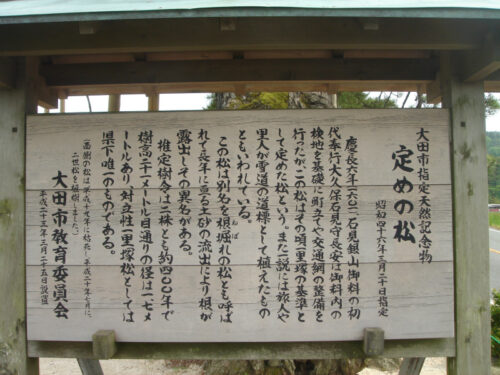 大田市指定天然記念物
定めの松
昭和四十六年三月二十日指定
慶長六年(一六〇一)石見銀山御料の初
代奉行大久保石見守長安は御料内の
検地を基礎に町立てや交通網の整備を
行ったが、この松はその頃一里塚の基準と
して定めた松という。また一説には旅人や
里人が雪道の道標として植えたもの
ともいわれている。
この松は別名を根堀れの松とも呼ば
れて長年に亘る土砂の流出により根が
露出しその異名がある。
推定樹令は二株とも約四〇〇年で
樹高二十一メートル目通りの径は一・七メ
ートルあり、対立性一里塚松としては
県下唯一のものである。
(西側の松は平成十九年に枯死し平成二十年七月に、
二世松を植樹しました。)
大田市教育委員会
平成二十三年三月二十五日設置